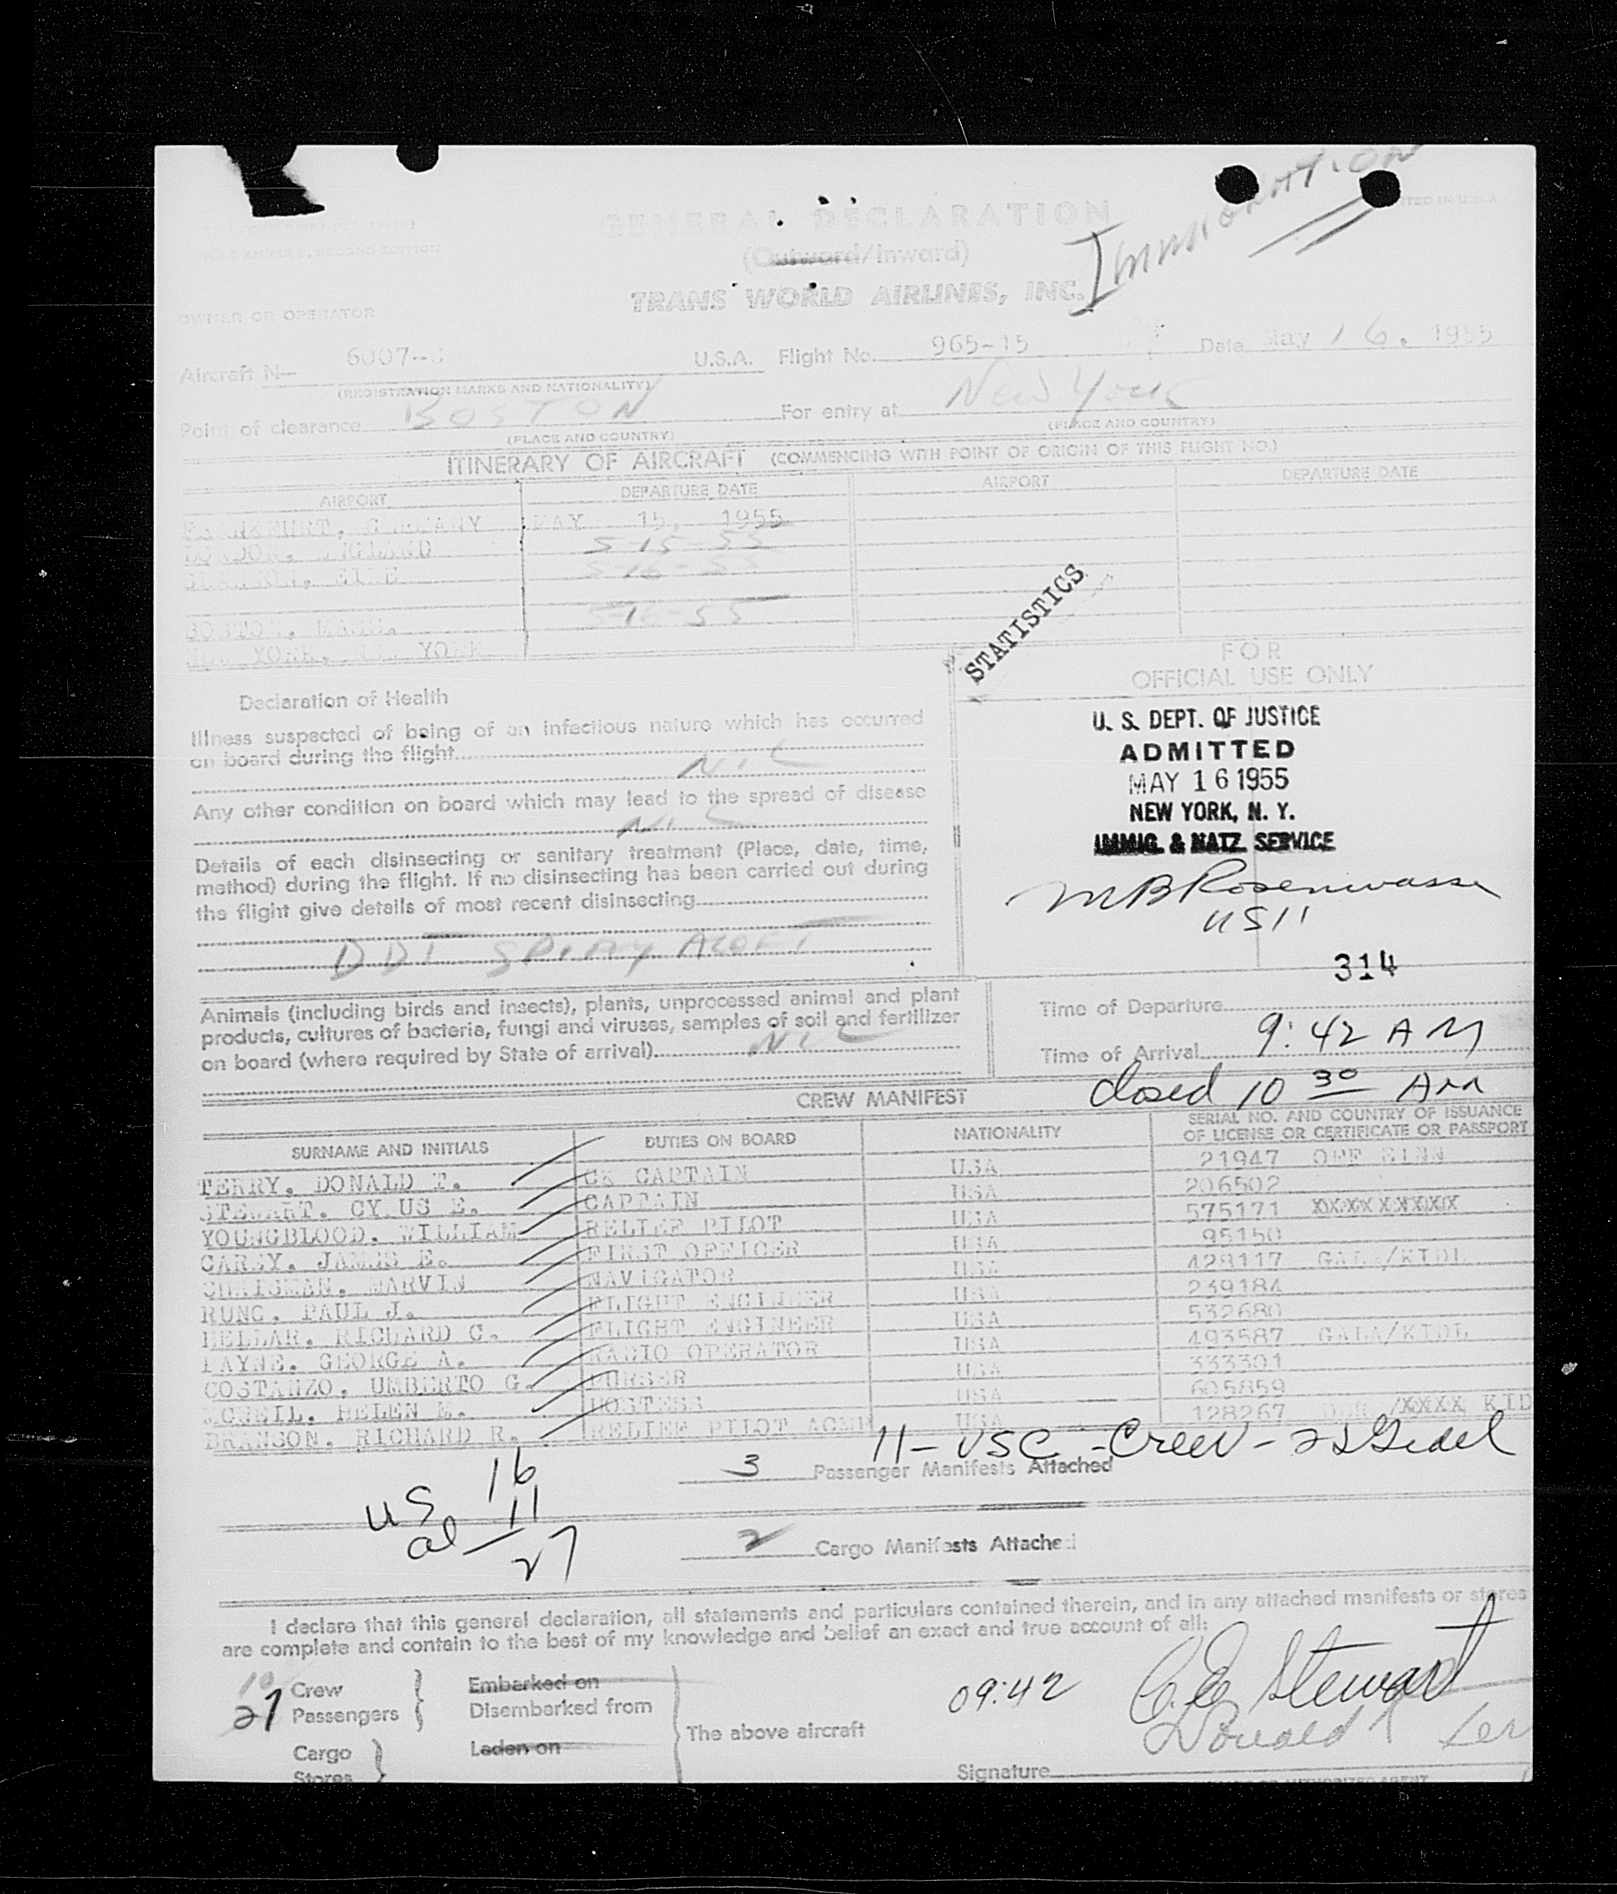 IMMIGRATION
GENERAL DECLARATION
(Outward/Inward)
TRANS WORLD AIRLINES, INC.
OWNER OR OPERATOR
Aircraft N— 6007- U.S.A. Flight No. 965-15 Date May 16. 1955
(REGISTRATION MARKS AND NATIONALITY)
Point of clearance BOSTON For entry at New York
(PLACE AND COUNTRY) (PLACE AND COUNTRY)
ITINERARY OF AIRCRAFT (COMMENCING WITH POINT OF ORIGIN OF THIS FLIGHT NO.)
AIRPORT DEPARTURE DATE AIRPORT DEPARTURE DATE
FRANKFURT, GERMANY MAY 15, 1955
LONDON, ENGLAND 5-15-55
SHANNON, EIRE 5-16-55
BOSTON, MASS. 5-16-55
NEW YORK, NEW YORK
STATISTICS
FOR
OFFICIAL USE ONLY
Declaration of Health
Illness suspected of being of an infectious nature which has occurred
on board during the flight
NIL
Any other condition on board which may lead to the spread of disease
NIL
Details of each disinsecting or sanitary treatment (Place, date, time,
method) during the flight. If no disinsecting has been carried out during
the flight give details of most recent disinsecting
DDT SPRAY ALOFT
U. S. DEPT. OF JUSTICE
ADMITTED
MAY 16 1955
NEW YORK, N. Y.
IMMIG. & NATZ. SERVICE
MB Rosenwasser
USII
314
Animals (including birds and insects), plants, unprocessed animal and plant
products, cultures of bacteria, fungi and viruses, samples of soil and fertilizer
on board (where required by State of arrival) NIL
Time of Departure
Time of Arrival 9:42 AM
closed 10 30 Am
CREW MANIFEST
SURNAME AND INITIALS DUTIES ON BOARD NATIONALITY SERIAL NO. AND COUNTRY OF ISSUANCE
OF LICENSE OR CERTIFICATE OR PASSPORT
TERRY, DONALD T. CK CAPTAIN USA 21947
STEWART, CYRUS E. CAPTAIN USA 206502
YOUNGBLOOD, WILLIAM RELIEF PILOT USA 575171
CAREY, JAMES E. FIRST OFFICER USA 95150
CHRISMAN, MARVIN NAVIGATOR USA 428117 GALA/KIDL
RUNG, PAUL J. FLIGHT ENGINEER USA 239184
HELLAR, RICHARD C. FLIGHT ENGINEER USA 532680
PAYNE, GEORGE A. RADIO OPERATOR USA 493587 GALA/KIDL
COSTANZO, UMBERTO G. PURSER USA 333301
MCNEIL, HELEN M. HOSTESS USA 605859
BRANSON, RICHARD R. RELIEF PILOT ACMR USA 128267
11- USC - Crew -
3 Passenger Manifests Attached
US 16
al 11
27
2 Cargo Manifests Attached
I declare that this general declaration, all statements and particulars contained therein, and in any attached manifests or stores
are complete and contain to the best of my knowledge and belief an exact and true account of all:
Crew Embarked on
27 Passengers Disembarked from
Cargo Laden on
Stores
The above aircraft
09:42
C. E. Stewart
Donald T Ter
Signature